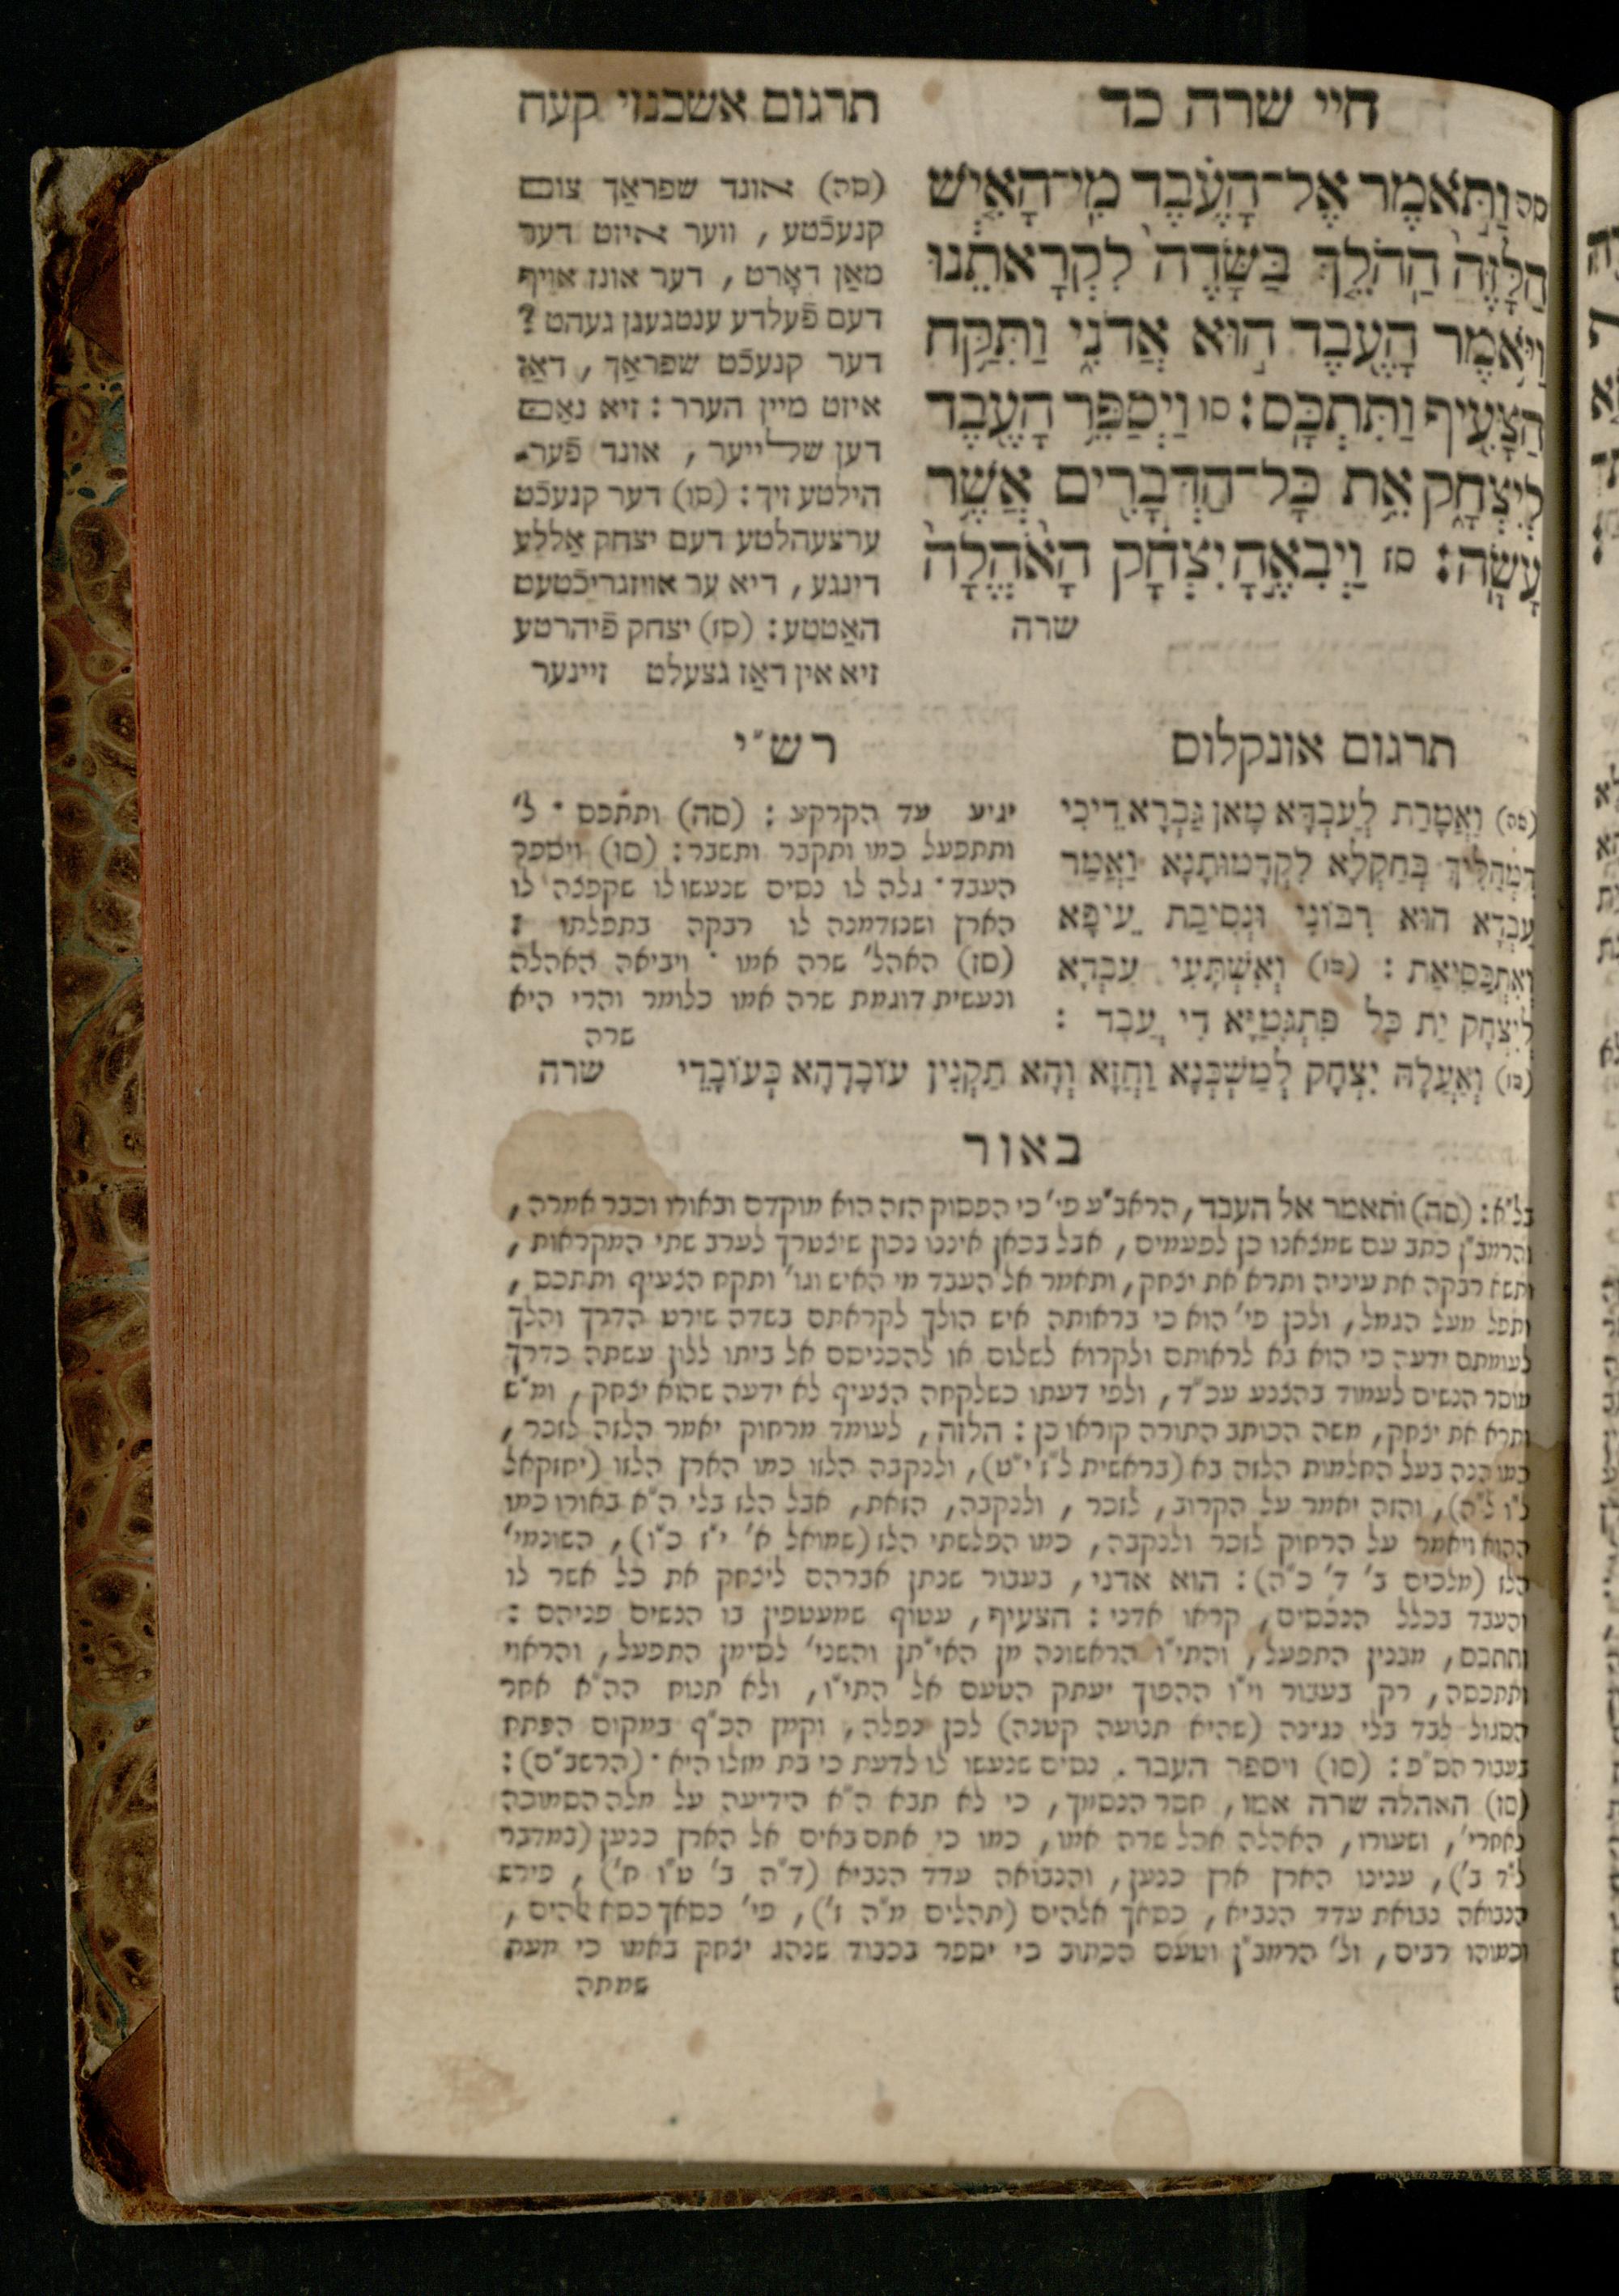 חיי שרה כד
תרגום אשכנזי קעח
סה וַתֹּאמֶר אֶל־הָעֶבֶד מִי־הָאִישׁ
הַלָּזֶה הַהֹלֵךְ בַּשָּׂדֶה לִקְרָאתֵנוּ
וַיֹּאמֶר הָעֶבֶד הוּא אֲדֹנִי וַתִּקַּח
הַצָּעִיף וַתִּתְכָּס: סו וַיְסַפֵּר הָעֶבֶד
לְיִצְחָק אֵת כָּל־הַדְּבָרִים אֲשֶׁר
עָשָׂה: סז וַיְבִאֶהָ יִצְחָק הָאֹהֱלָה
שרה
(סה) אונד שפראַך צום
קנעכֿטע, ווער איזט דער
מאַן דאָרט, דער אונז אויף
דעם פֿעלדע ענטגעגן געהט?
דער קנעכֿט שפראַך, דאַז
איזט מיין הערר: זיא נאַהם
דען שלייער, אונד פֿער־
הילטע זיך: (סו) דער קנעכֿט
ערצעהלטע דעם יצחק אַללע
דינגע, דיא ער אויזגריכֿטעט
האַטטע: (סז) יצחק פֿיהרטע
זיא אין דאַז געצעלט זיינער
תרגום אונקלוס
(סה) וַאֲמָרַת לְעַבְדָּא מָאן גַּבְרָא דֵיכִי
דִּמְהַלֵּיךְ בְּחַקְלָא לְקַדָמוּתָנָא וַאֲמַר
עַבְדָּא הוּא רִבּוֹנִי וּנְסִיבַת עֵיפָא
וְאִתְכַּסִּיאַת: (סו) וְאִשְׁתָּעִי עַבְדָּא
לְיִצְחָק יַת כָּל פִּתְגָּמַיָּא דִי עֲבַד:
(סז) וְאַעֲלָהּ יִצְחָק לְמַשְׁכְּנָא וַחֲזָא וְהָא תַקְנִין עוֹבָדָהָא כְּעוֹבָדֵי שרה
רש״י
יגיע עד הקרקע: (סה) ותתכס. ל'
ותתפעל כמו ותקבר ותשבר: (סו) ויספר
העבד. גלה לו נסים שנעשו לו שקפצה לו
הארץ ושנזדמנה לו רבקה בתפלתו:
(סז) האהל' שרה אמו. ויביאה האהלה
ונעשית דוגמת שרה אמו כלומר והרי היא
שרה
באור
בל״א: (סה) ותאמר אל העבד, הראב״ע פי' כי הפסוק הזה הוא מוקדם ובאורו וכבר אמרה,
והרמב״ן כתב עם שמצאנו כן לפעמים, אבל בכאן איננו נכון שיצטרך לערב שתי המקראות,
ותשא רבקה את עיניה ותרא את יצחק, ותאמר אל העבד מי האיש וגו' ותקח הצעיף ותתכס,
ותפל מעל הגמל, ולכן פי' הוא כי בראותה איש הולך לקראתם בשדה שירט הדרך והלך
לעומתם ידעה כי הוא בא לראותם ולקרוא לשלום או להכניסם אל ביתו ללון עשתה כדרך
מוסר הנשים לעמוד בהצנע עכ״ד, ולפי דעתו כשלקחה הצעיף לא ידעה שהוא יצחק, ומ״ש
ותרא את יצחק, משה הכותב התורה קוראו כן: הלזה, לעומד מרחוק יאמר הלזה לזכר,
כמו הנה בעל החלמות הלזה בא (בראשית ל״ז י״ט), ולנקבה הלזו כמו הארץ הלזו (יחזקאל
ל״ו ל״ה), והזה יאמר על הקרוב, לזכר, ולנקבה, הזאת, אבל הלז בלי ה״א באורו כמו
ההוא ויאמר על הרחוק לזכר ולנקבה, כמו הפלשתי הלז (שמואל א' י״ז כ״ו), השונמי'
הלז (מלכים ב' ד' כ״ה): הוא אדני, בעבור שנתן אברהם ליצחק את כל אשר לו
והעבד בכלל הנכסים, קראו אדני: הצעיף, עטוף שמעטפין בו הנשים פניהם:
ותתכס, מבנין התפעל, והתי״ו הראשונה מן האי״תן והשני' לסימן התפעל, והראוי
ותתכסה, רק בעבור וי״ו ההפוך יעתק הטעם אל התי״ו, ולא תנוח הה״א אחר
הסגול לבד בלי נגינה (שהיא תנועה קטנה) לכן נפלה, וקמץ הכ״ף במקום הפתח
בעבור הס״פ: (סו) ויספר העבד. נסים שנעשו לו לדעת כי בת מזלו היא. (הרשב״ם):
(סז) האהלה שרה אמו, חסר הנסמך, כי לא תבא ה״א הידיעה על מלה הסמוכה
לאחרי', ושעורו, האהלה אהל שרה אמו, כמו כי אתם באים אל הארץ כנען (במדבר
ל״ד ב'), ענינו הארץ ארץ כנען, והנבואה עדד הנביא (ד״ה ב' ט״ו ח'), פירש
הנבואה נבואת עדד הנביא, כסאך אלהים (תהלים מ״ה ז'), פי' כסאך כסא אלהים,
וכמוהו רבים, ול' הרמב״ן וטעם הכתוב כי יספר בכבוד שנהג יצחק באמו כי מעת
שמתה